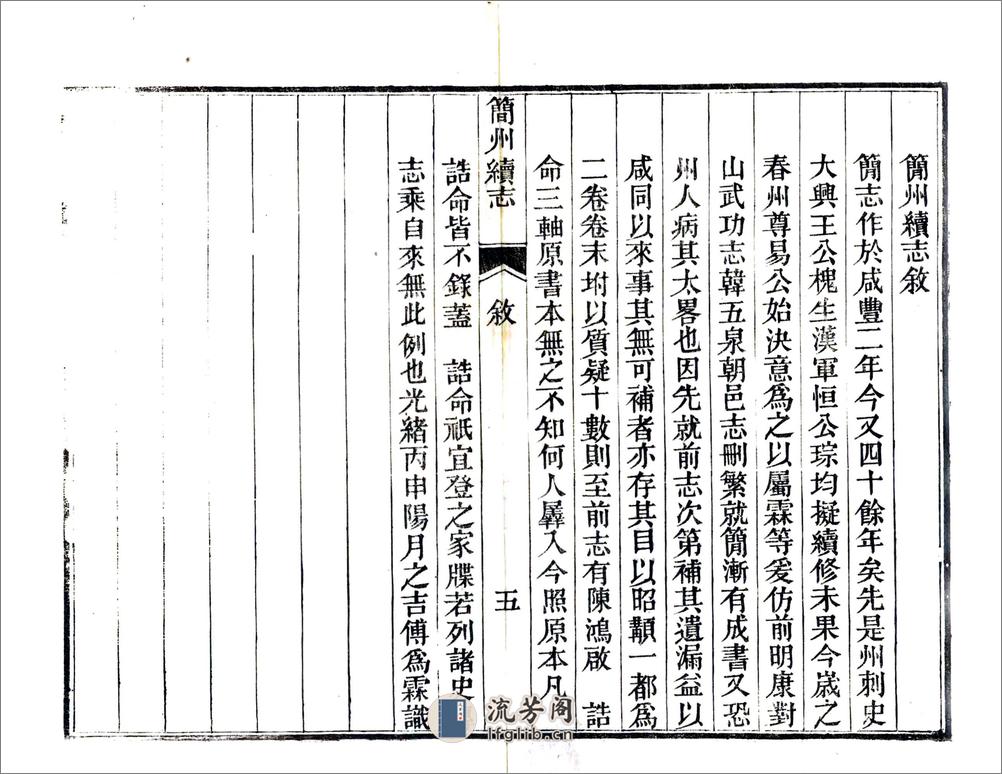 簡州續志敘
簡志作於咸豐二年今又四十餘年矣先是州刺史
大興王公槐生漢軍恒公琮均擬續修未果今嵗之
春州尊易公始決意爲之以屬霖等爰仿前明康對
山武功志韓五泉朝邑志刪繁就簡漸有成書又恐
州人病其太畧也因先就前志次第補其遺漏益以
咸同以來事其無可補者亦存其目以昭顜一都爲
二卷卷末坿以質疑十數則至前志有陳鴻啟 誥
命三軸原書本無之不知何人羼入今照原本凡
簡州續志 敘 五
誥命皆不錄蓋 誥命祇宜登之家牒若列諸史
志乘自來無此例也光緒丙申陽月之吉傅爲霖識
流芳阁
lfglib.cn